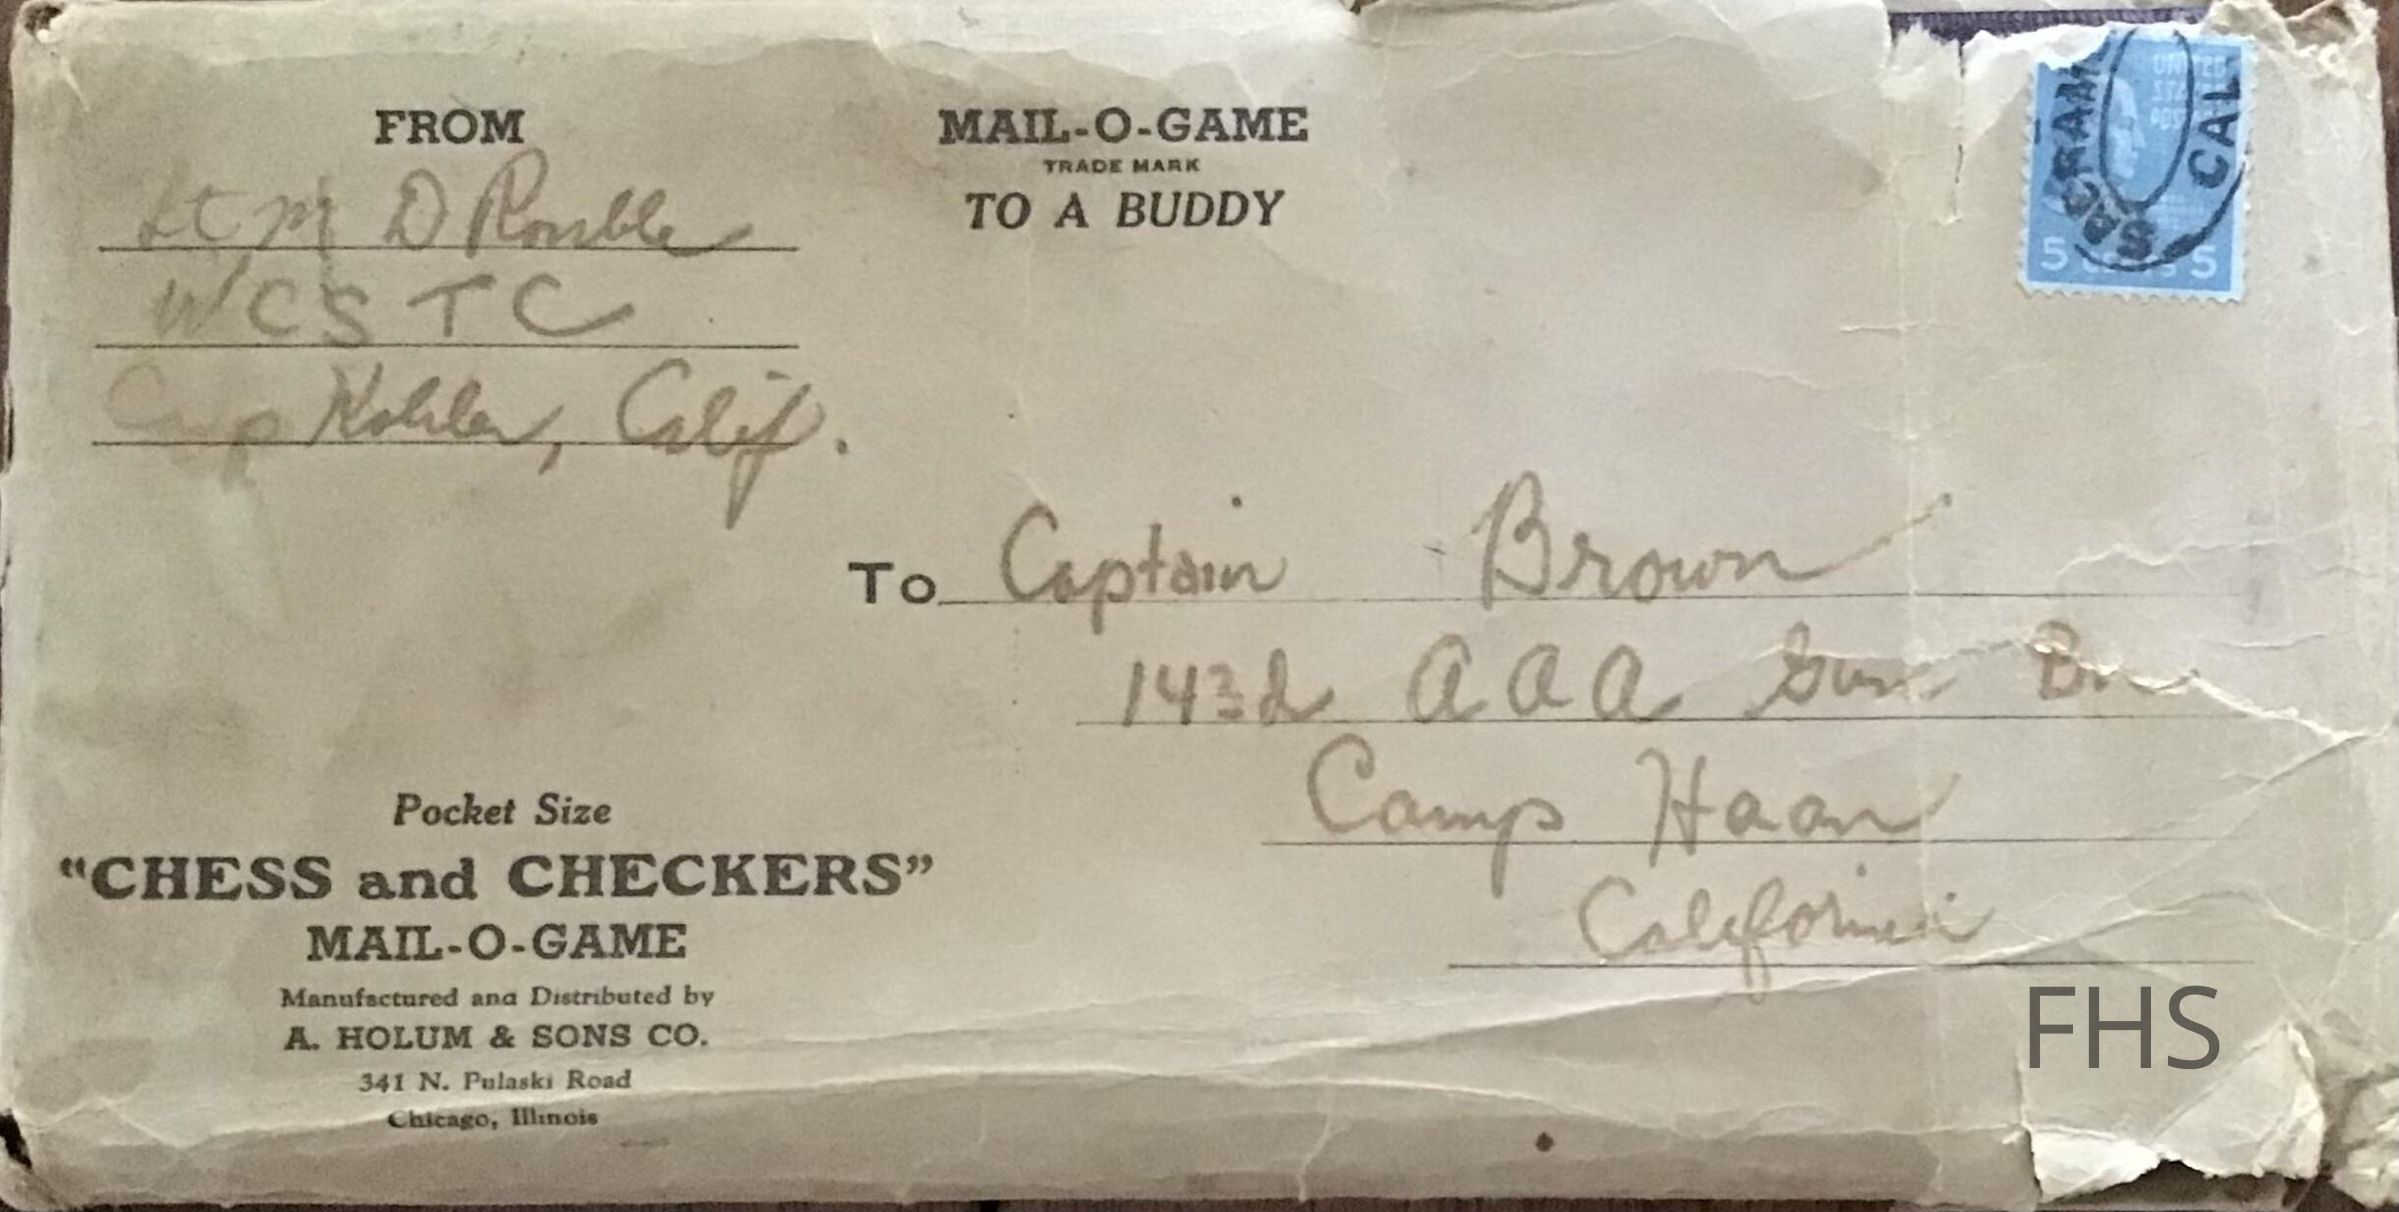 FROM
Lt M D Rouble
W C S T C
Camp Kohler, Calif.
MAIL-O-GAME
TRADE MARK
TO A BUDDY
UNITED
STATES
5 CENTS 5
SACRAM
CAL
To Captain Brown
143d AAA Gun Bn
Camp Haan
California
Pocket Size
“CHESS and CHECKERS”
MAIL-O-GAME
Manufactured and Distributed by
A. HOLUM & SONS CO.
341 N. Pulaski Road
Chicago, Illinois
FHS